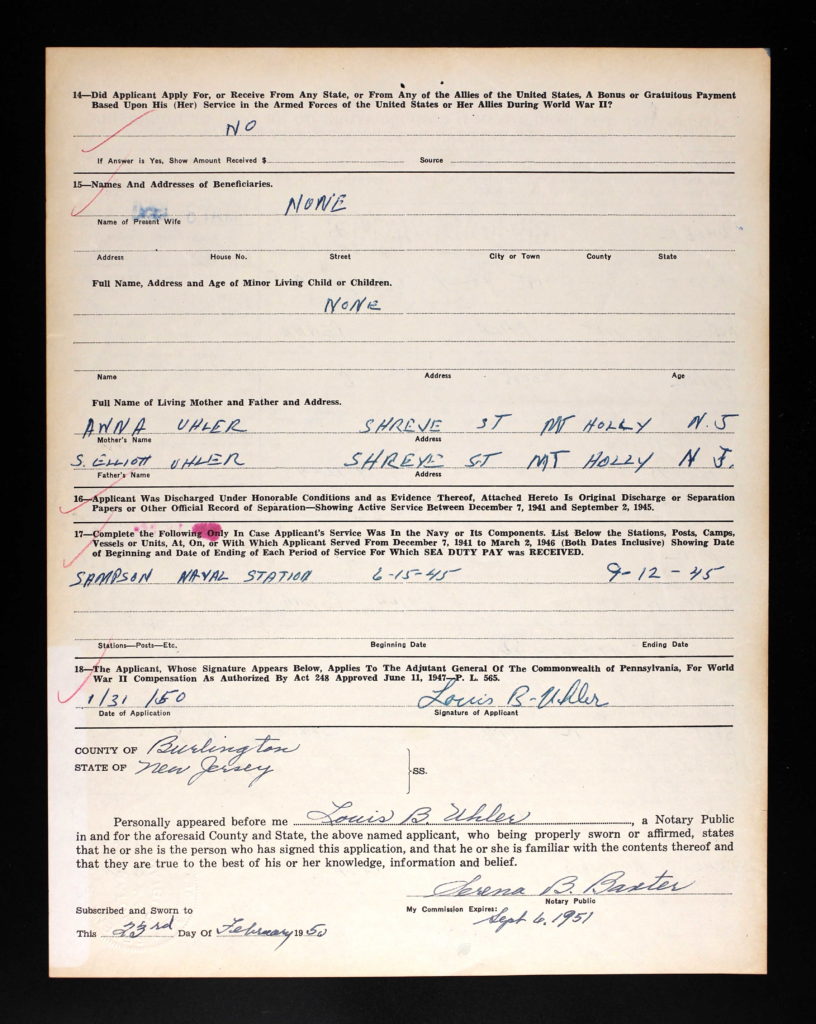 14—Did Applicant Apply For, or Receive From Any State, or From Any of the Allies of the United States, A Bonus or Gratuitous Payment
Based Upon His (Her) Service in the Armed Forces of the United States or Her Allies During World War II?
NO
If Answer is Yes, Show Amount Received $ Source
15—Names And Addresses of Beneficiaries.
NONE
Name of Present Wife
Address House No. Street City or Town County State
Full Name, Address and Age of Minor Living Child or Children.
NONE
Name Address Age
Full Name of Living Mother and Father and Address.
ANNA UHLER SHREVE ST MT HOLLY N.J
Mother's Name Address
S. ELLIOTT UHLER SHREVE ST MT HOLLY N J.
Father's Name Address
16—Applicant Was Discharged Under Honorable Conditions and as Evidence Thereof, Attached Hereto Is Original Discharge or Separation
Papers or Other Official Record of Separation—Showing Active Service Between December 7, 1941 and September 2, 1945.
17—Complete the Following Only In Case Applicant's Service Was In the Navy or Its Components. List Below the Stations, Posts, Camps,
Vessels or Units, At, On, or With Which Applicant Served From December 7, 1941 to March 2, 1946 (Both Dates Inclusive) Showing Date
of Beginning and Date of Ending of Each Period of Service For Which SEA DUTY PAY was RECEIVED.
SAMPSON NAVAL STATION 6-15-45 9-12-45
Stations—Posts—Etc. Beginning Date Ending Date
18—The Applicant, Whose Signature Appears Below, Applies To The Adjutant General Of The Commonwealth of Pennsylvania, For World
War II Compensation As Authorized By Act 248 Approved June 11, 1947—P. L. 565.
1/31/50 Louis B. Uhler
Date of Application Signature of Applicant
COUNTY OF Burlington
STATE OF New Jersey SS.
Personally appeared before me Louis B. Uhler, a Notary Public
in and for the aforesaid County and State, the above named applicant, who being properly sworn or affirmed, states
that he or she is the person who has signed this application, and that he or she is familiar with the contents thereof and
that they are true to the best of his or her knowledge, information and belief.
Serena B. Baxter
Notary Public
Subscribed and Sworn to My Commission Expires: Sept 6, 1951
This 23rd Day Of February 1950